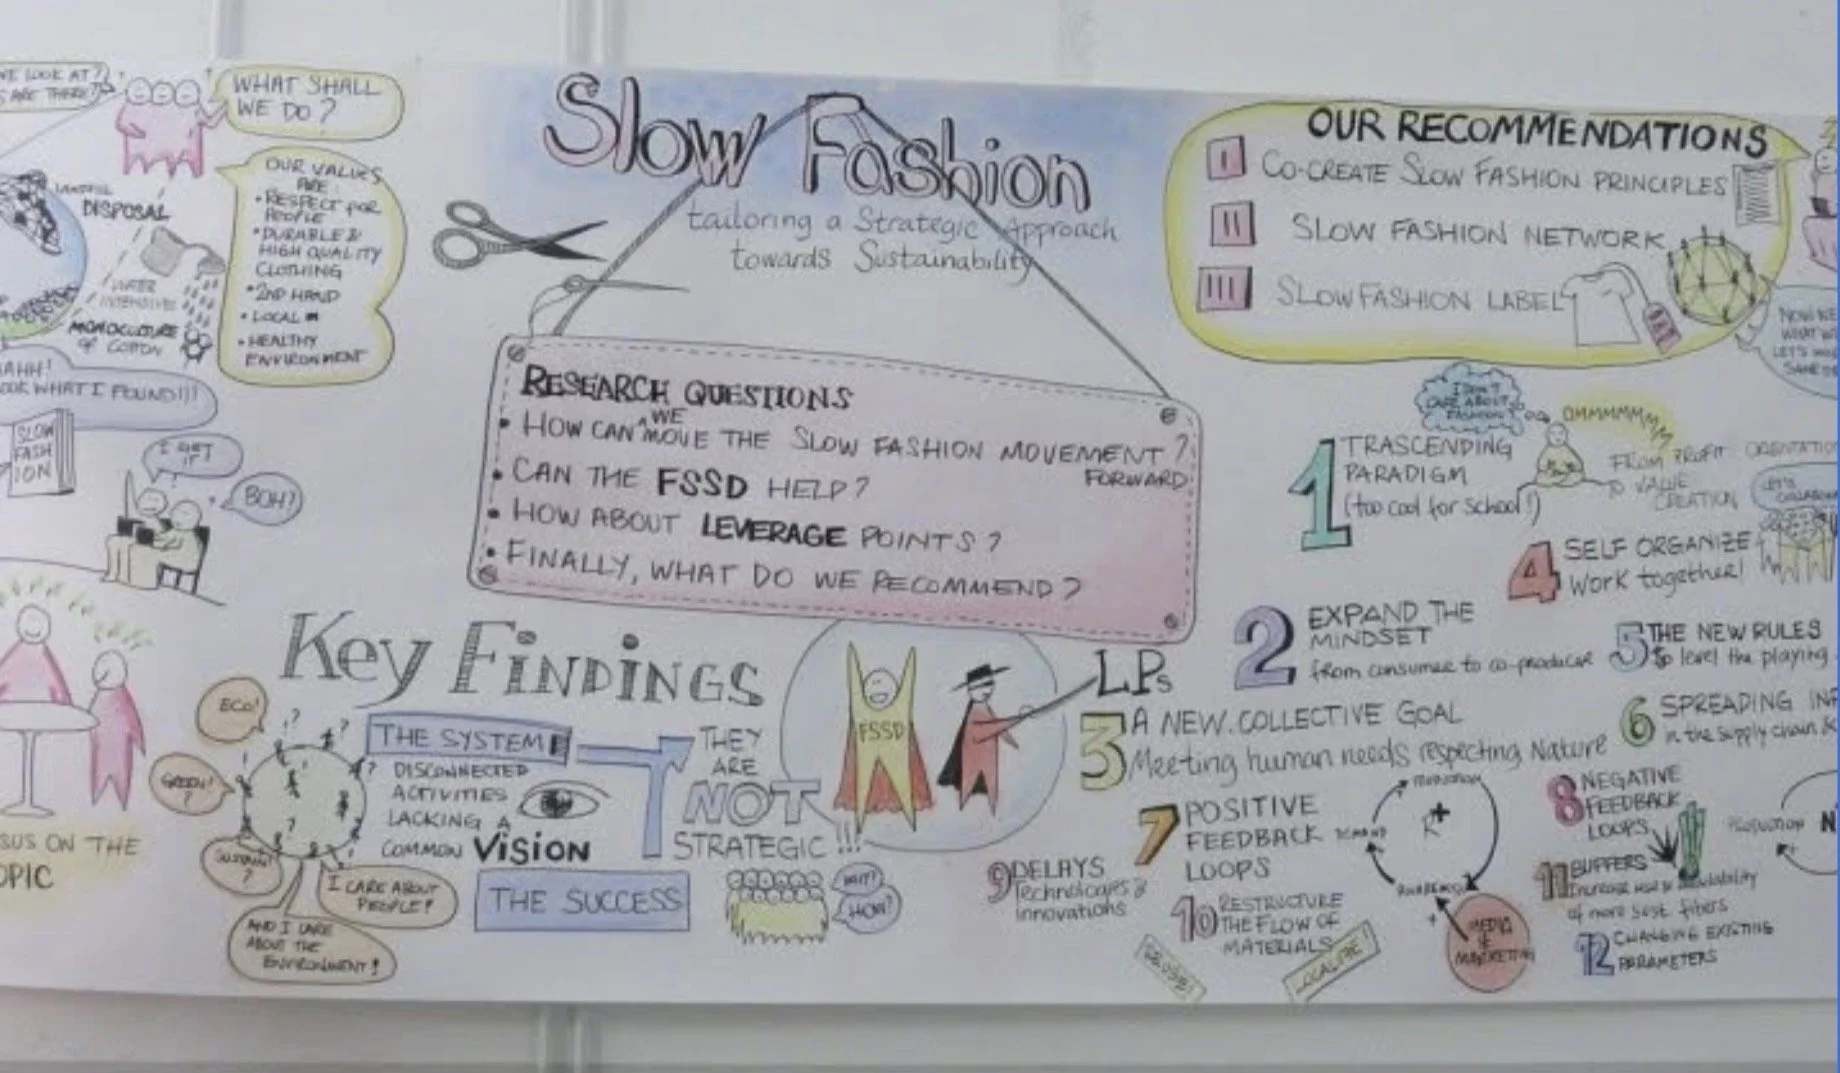 WE LOOK AT?
ARE THERE?
WHAT SHALL
WE DO?
OUR VALUES
ARE:
• RESPECT FOR
PEOPLE
• DURABLE &
HIGH QUALITY
CLOTHING
• 2ND HAND
• LOCAL
• HEALTHY
ENVIRONMENT
LANDFILL
DISPOSAL
WATER
INTENSIVE
MONOCULTURE
OF COTTON
AHH!
WHAT I FOUND!!!
SLOW
FASH
ION
I GET
IT
BOH?
ON THE
Slow Fashion
tailoring a Strategic Approach
towards Sustainability
RESEARCH QUESTIONS
• HOW CAN WE MOVE THE SLOW FASHION MOVEMENT ?
FORWARD
• CAN THE FSSD HELP?
• HOW ABOUT LEVERAGE POINTS?
• FINALLY, WHAT DO WE RECOMMEND?
OUR RECOMMENDATIONS
I CO-CREATE SLOW FASHION PRINCIPLES
II SLOW FASHION NETWORK
III SLOW FASHION LABEL
NOW WE
WHAT
LET'S
Key FINDINGS
ECO!
GREEN!
?
SUSTAIN!
?
I CARE ABOUT
PEOPLE!
AND I CARE
ABOUT THE
ENVIRONMENT!
THE SYSTEM
DISCONNECTED
ACTIVITIES
LACKING A
COMMON VISION
THEY
ARE
NOT
STRATEGIC!!!
THE SUCCESS
WAIT!
HOW?
FSSD
LPs
I DON'T
CARE ABOUT
FASHION
OHMMMMMM
1 TRASCENDING
PARADIGM
(too cool for school!)
FROM PROFIT ORIENTATION
TO VALUE
CREATION
LET'S
2 EXPAND THE
MINDSET
from consumer to co-producer
3 A NEW COLLECTIVE GOAL
Meeting human needs respecting Nature
4 SELF ORGANIZE
work together!
5 THE NEW RULES
to level the playing
6 SPREADING
in the supply chain &
7 POSITIVE
FEEDBACK
LOOPS
DEMAND
R+
AWARENESS
MEDIA
&
MARKETING
8 NEGATIVE
FEEDBACK
LOOPS
PRODUCTION
9 DELAYS
Technologies &
Innovations
10 RESTRUCTURE
THE FLOW OF
MATERIALS
LOCALIZE!
11 BUFFERS
Increase use & availability
of more sust. fibers
12 CHANGING EXISTING
PARAMETERS